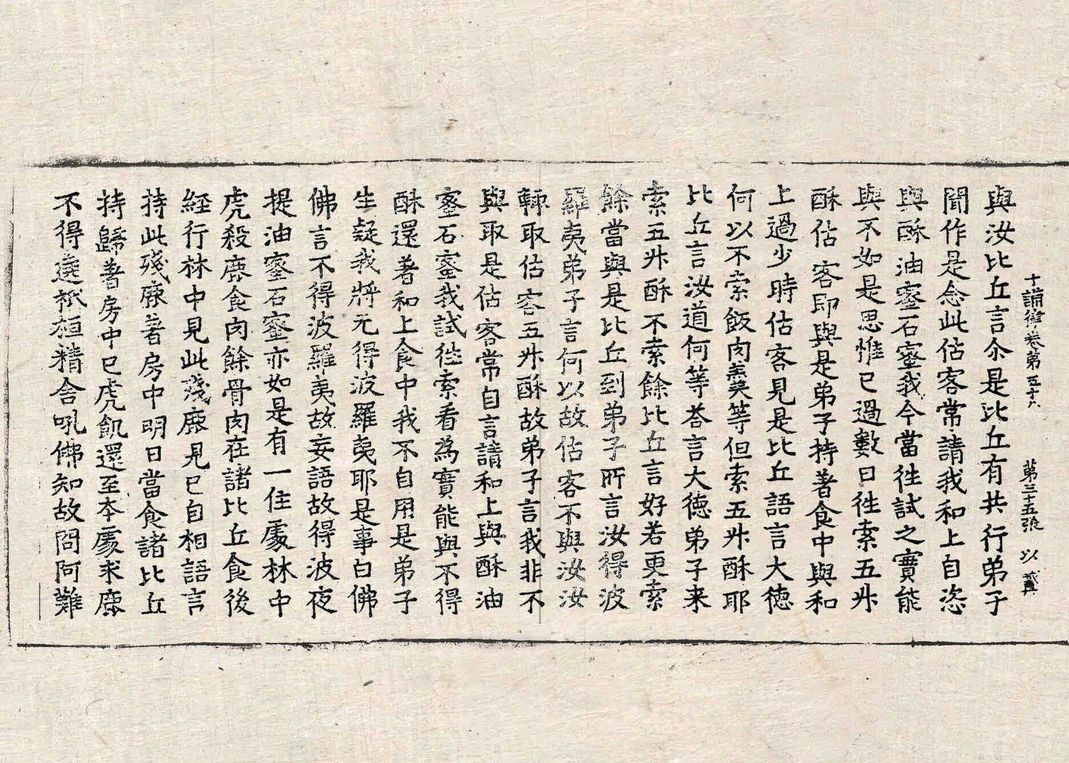 十誦律卷第五十八 第三十五張 以
與汝比丘言尒是比丘有共行弟子
聞作是念此估客常請我和上自恣
與酥油蜜石蜜我今當往試之實能
與不如是思惟已過數日往索五升
酥估客即與是弟子持著食中與和
上過少時估客見是比丘語言大德
何以不索飯肉羹等但索五升酥耶
比丘言汝道何等荅言大德弟子来
索五升酥不索餘比丘言好若更索
餘當與是比丘到弟子所言汝得波
羅夷弟子言何以故估客不與汝汝
輒取估客五升酥故弟子言我非不
與取是估客常自言請和上與酥油
蜜石蜜我試往索看為實能與不得
酥還著和上食中我不自用是弟子
生疑我將无得波羅夷耶是事白佛
佛言不得波羅夷故妄語故得波夜
提油蜜石蜜亦如是有一住處林中
虎殺鹿食肉餘骨肉在諸比丘食後
經行林中見此殘鹿見已自相語言
持此殘鹿著房中明日當食諸比丘
持歸著房中已虎飢還至本處求鹿
不得遶祇桓精舍吼佛知故問阿難